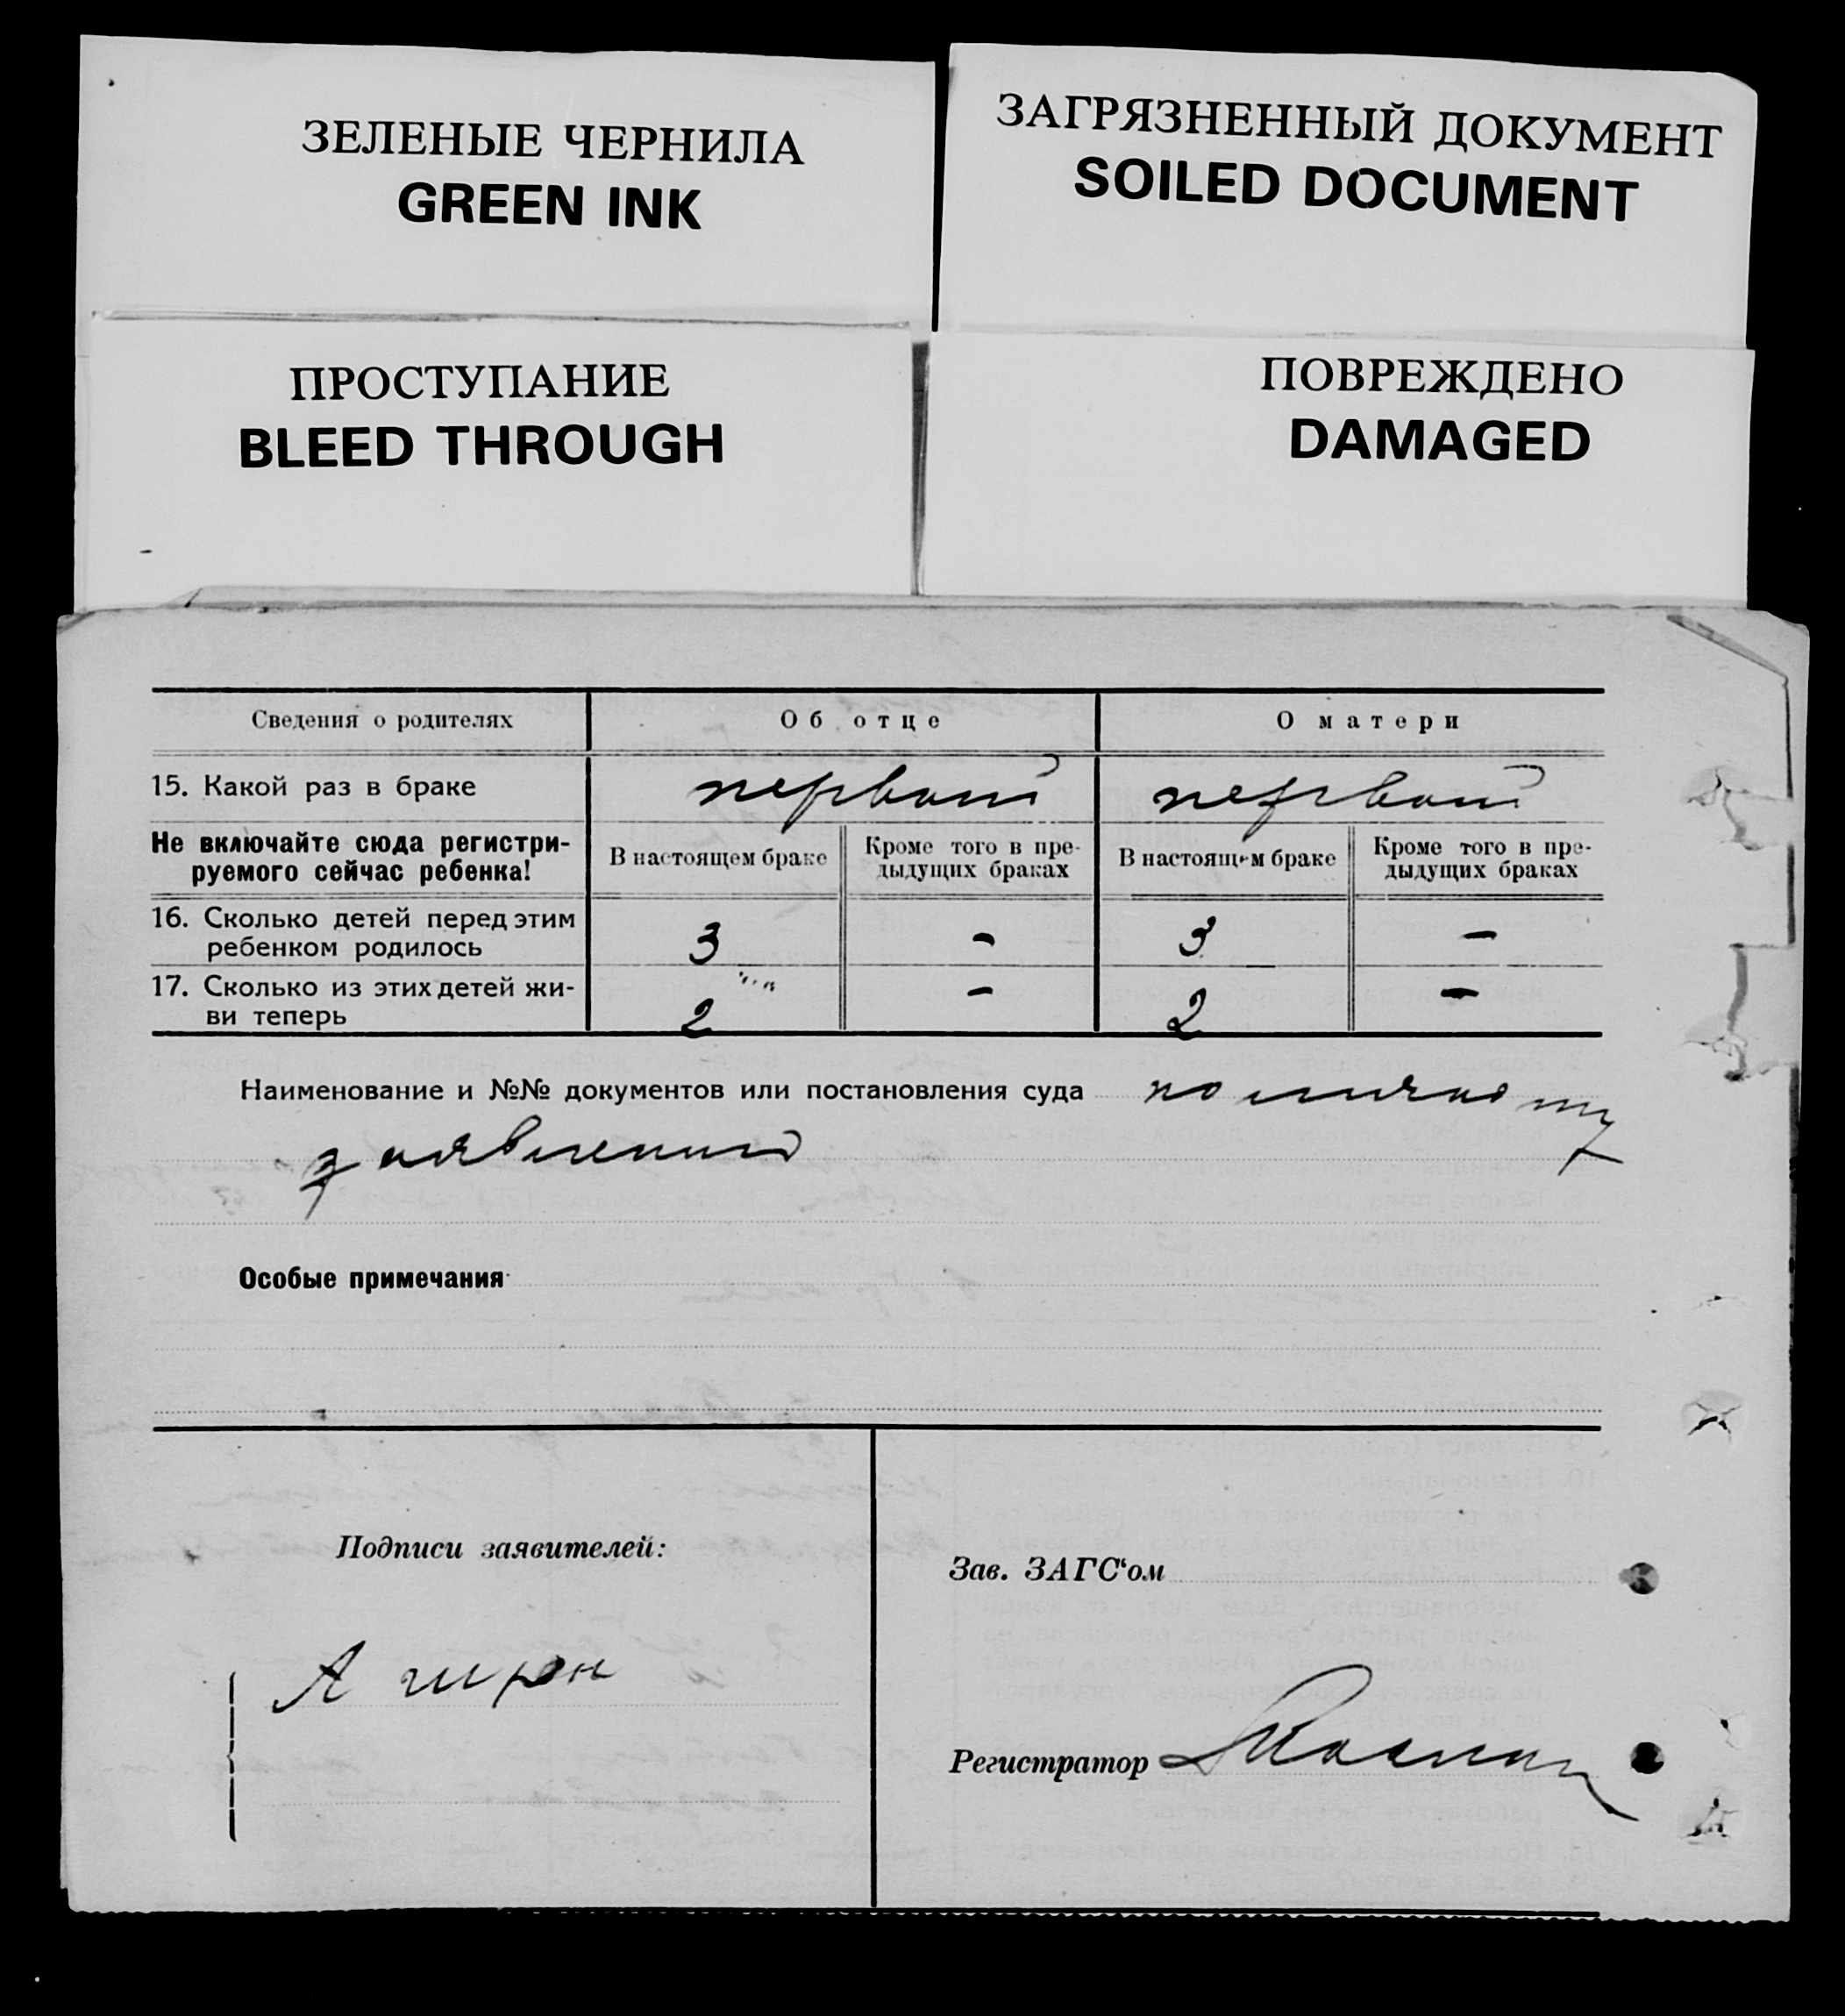 ЗЕЛЕНЫЕ ЧЕРНИЛА
GREEN INK
ЗАГРЯЗНЕННЫЙ ДОКУМЕНТ
SOILED DOCUMENT
ПРОСТУПАНИЕ
BLEED THROUGH
ПОВРЕЖДЕНО
DAMAGED
Сведения о родителях Об отце О матери
15. Какой раз в браке первый первый
Не включайте сюда регистри-
руемого сейчас ребенка!
В настоящем браке
Кроме того в пре-
дыдущих браках
В настоящем браке
Кроме того в пре-
дыдущих браках
16. Сколько детей перед этим
ребенком родилось 3 - 3 -
17. Сколько из этих детей жи-
ви теперь 2 - 2 -
Наименование и №№ документов или постановления суда по личному
заявлению
Особые примечания
Подписи заявителей:
Зав. ЗАГС‘ом
А
Регистратор